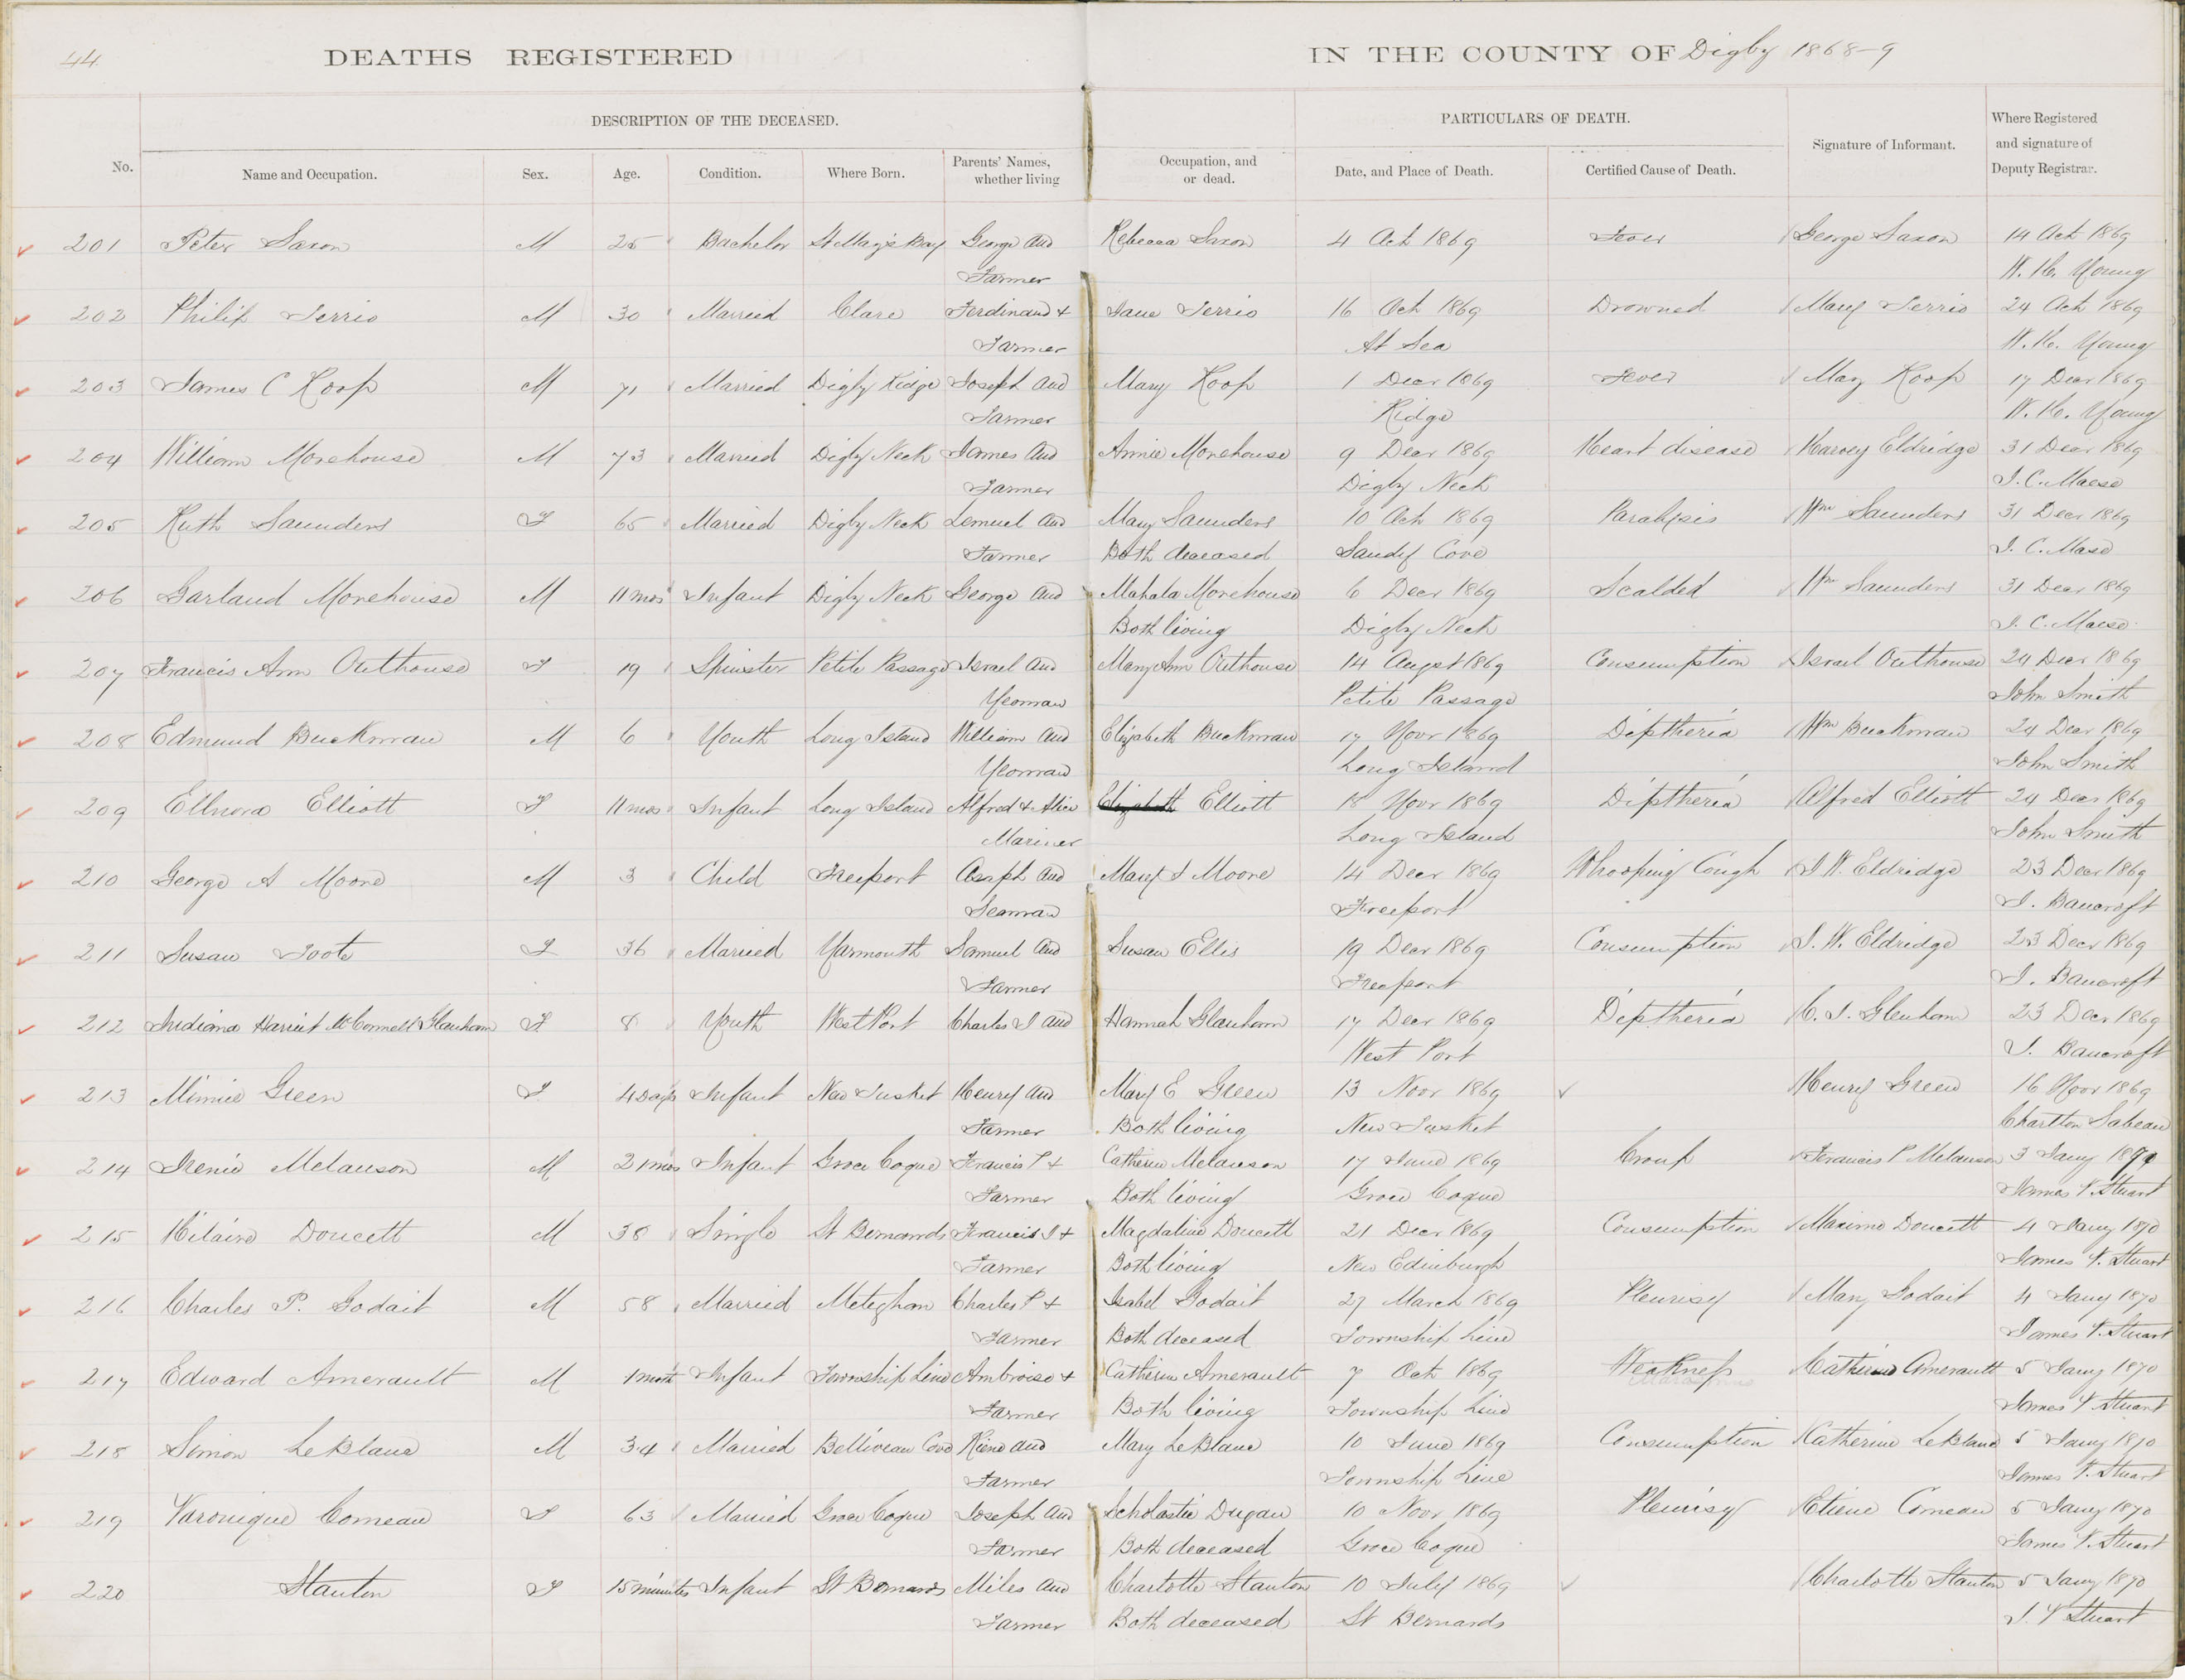 44 DEATHS REGISTERED IN THE COUNTY OF Digby 1868-9
DESCRIPTION OF THE DECEASED. PARTICULARS OF DEATH.
No. Name and Occupation. Sex. Age. Condition. Where Born. Parents' Names, whether living Occupation, and or dead. Date, and Place of Death. Certified Cause of Death. Signature of Informant. Where Registered and signature of Deputy Registrar.
201 Peter Saxon M 25 Bachelor St Mary's Bay George and Rebecca Saxon 4 Oct 1869 Fever George Saxon 14 Oct 1869
Farmer W. H. Young
202 Philip Terrio M 30 Married Clare Ferdinand + Jane Terrio 16 Oct 1869 Drowned Mary Terrio 24 Oct 1869
Farmer At Sea W. H. Young
203 James C Roop M 71 Married Digby Ridge Joseph and Mary Roop 1 Decr 1869 Fever Mary Roop 17 Decr 1869
Farmer Ridge W. H. Young
204 William Morehouse M 73 Married Digby Neck James and Annie Morehouse 9 Decr 1869 Heart disease Harvey Eldridge 31 Decr 1869
Farmer Digby Neck J. C. Morse
205 Ruth Saunders F 65 Married Digby Neck Lemuel and Mary Saunders 10 Oct 1869 Paralysis Wm Saunders 31 Decr 1869
Farmer Both deceased Sandy Cove J. C. Morse
206 Garland Morehouse M 11 mos Infant Digby Neck George and Mahala Morehouse 6 Decr 1869 Scalded Wm Saunders 31 Decr 1869
Both living Digby Neck J. C. Morse
207 Francis Ann Outhouse F 19 Spinster Petite Passage Israel and Mary Ann Outhouse 14 Augst 1869 Consumption Israel Outhouse 24 Decr 1869
Yeoman Petite Passage John Smith
208 Edmund Buckman M 6 Youth Long Island William and Elizabeth Buckman 17 Novr 1869 Diptheria Wm Buckman 24 Decr 1869
Yeoman Long Island John Smith
209 Ellnora Elliott F 11 mos Infant Long Island Alfred + Alice Elizabeth Elliott 18 Novr 1869 Diptheria Alfred Elliott 24 Decr 1869
Mariner Long Island John Smith
210 George A Moore M 3 Child Freeport Asaph and Mary J Moore 14 Decr 1869 Whooping Cough J W. Eldridge 23 Decr 1869
Seaman Freeport J. Bancroft
211 Susan Foote F 36 Married Yarmouth Samuel and Susan Ellis 19 Decr 1869 Consumption J. W. Eldridge 23 Decr 1869
Farmer Freeport J. Bancroft
212 Indiana Harriet McConnell Glauhom F 8 Youth West Port Charles J and Hannah Glauhom 17 Decr 1869 Diptheria C. J. Glenhom 23 Decr 1869
West Port J. Bancroft
213 Minnie Green F 4 Days Infant New Tusket Henry and Mary E Green 13 Novr 1869 Henry Green 16 Novr 1869
Farmer Both living New Tusket Charlton Sabean
214 Irenie Melanson M 21 mos Infant Groce Coque Francis P + Catherine Melanson 17 June 1869 Croup Francis P Melanson 3 Jany 1870
Farmer Both living Groce Coque James P. Stuart
215 Hilaire Doucett M 38 Single St Bernards Francis J + Magdaline Doucett 21 Decr 1869 Consumption Maxime Doucett 4 Jany 1870
Farmer Both living New Edinburgh James P. Stuart
216 Charles P. Godait M 58 Married Meteghan Charles P + Isabel Godait 27 March 1869 Pleurisy Mary Godait 4 Jany 1870
Farmer Both deceased Township Line James P. Stuart
217 Edward Amerault M 1 month Infant Township Line Ambroise + Catherine Amerault 7 Oct 1869 Weakness Catherine Amerault 5 Jany 1870
Farmer Both living Township Line James P. Stuart
218 Simon LeBlanc M 34 Married Belliveau Cove and Mary LeBlanc 10 June 1869 Consumption Katherine LeBlanc 5 Jany 1870
Farmer Township Line James P. Stuart
219 Varonique Comeau F 63 Married Groce Coque Joseph and Scholastie Dugan 10 Novr 1869 Pleurisy Etiene Comeau 5 Jany 1870
Farmer Both deceased Groce Coque James P. Stuart
220 Stanton F 15 minutes Infant St Bernards Miles and Charlotte Stanton 10 July 1869 Charlotte Stanton 5 Jany 1870
Farmer Both deceased St Bernards J. P Stuart